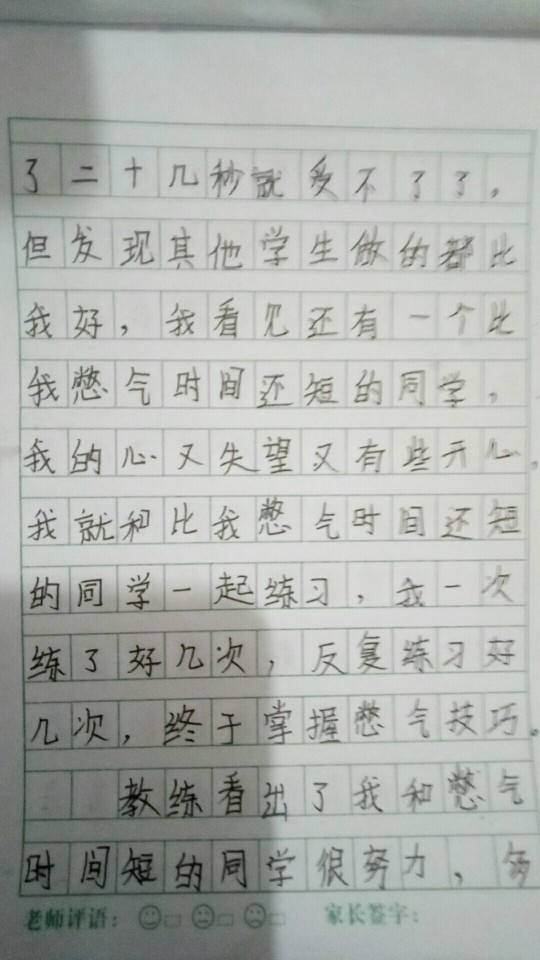 了二十几秒就受不了了，
但发现其他学生做的都比
我好，我看见还有一个比
我憋气时间还短的同学，
我的心又失望又有些开心，
我就和比我憋气时间还短
的同学一起练习，我一次
练了好几次，反复练习好
几次，终于掌握憋气技巧。
教练看出了我和憋气
时间短的同学很努力，
老师评语： 家长签字：